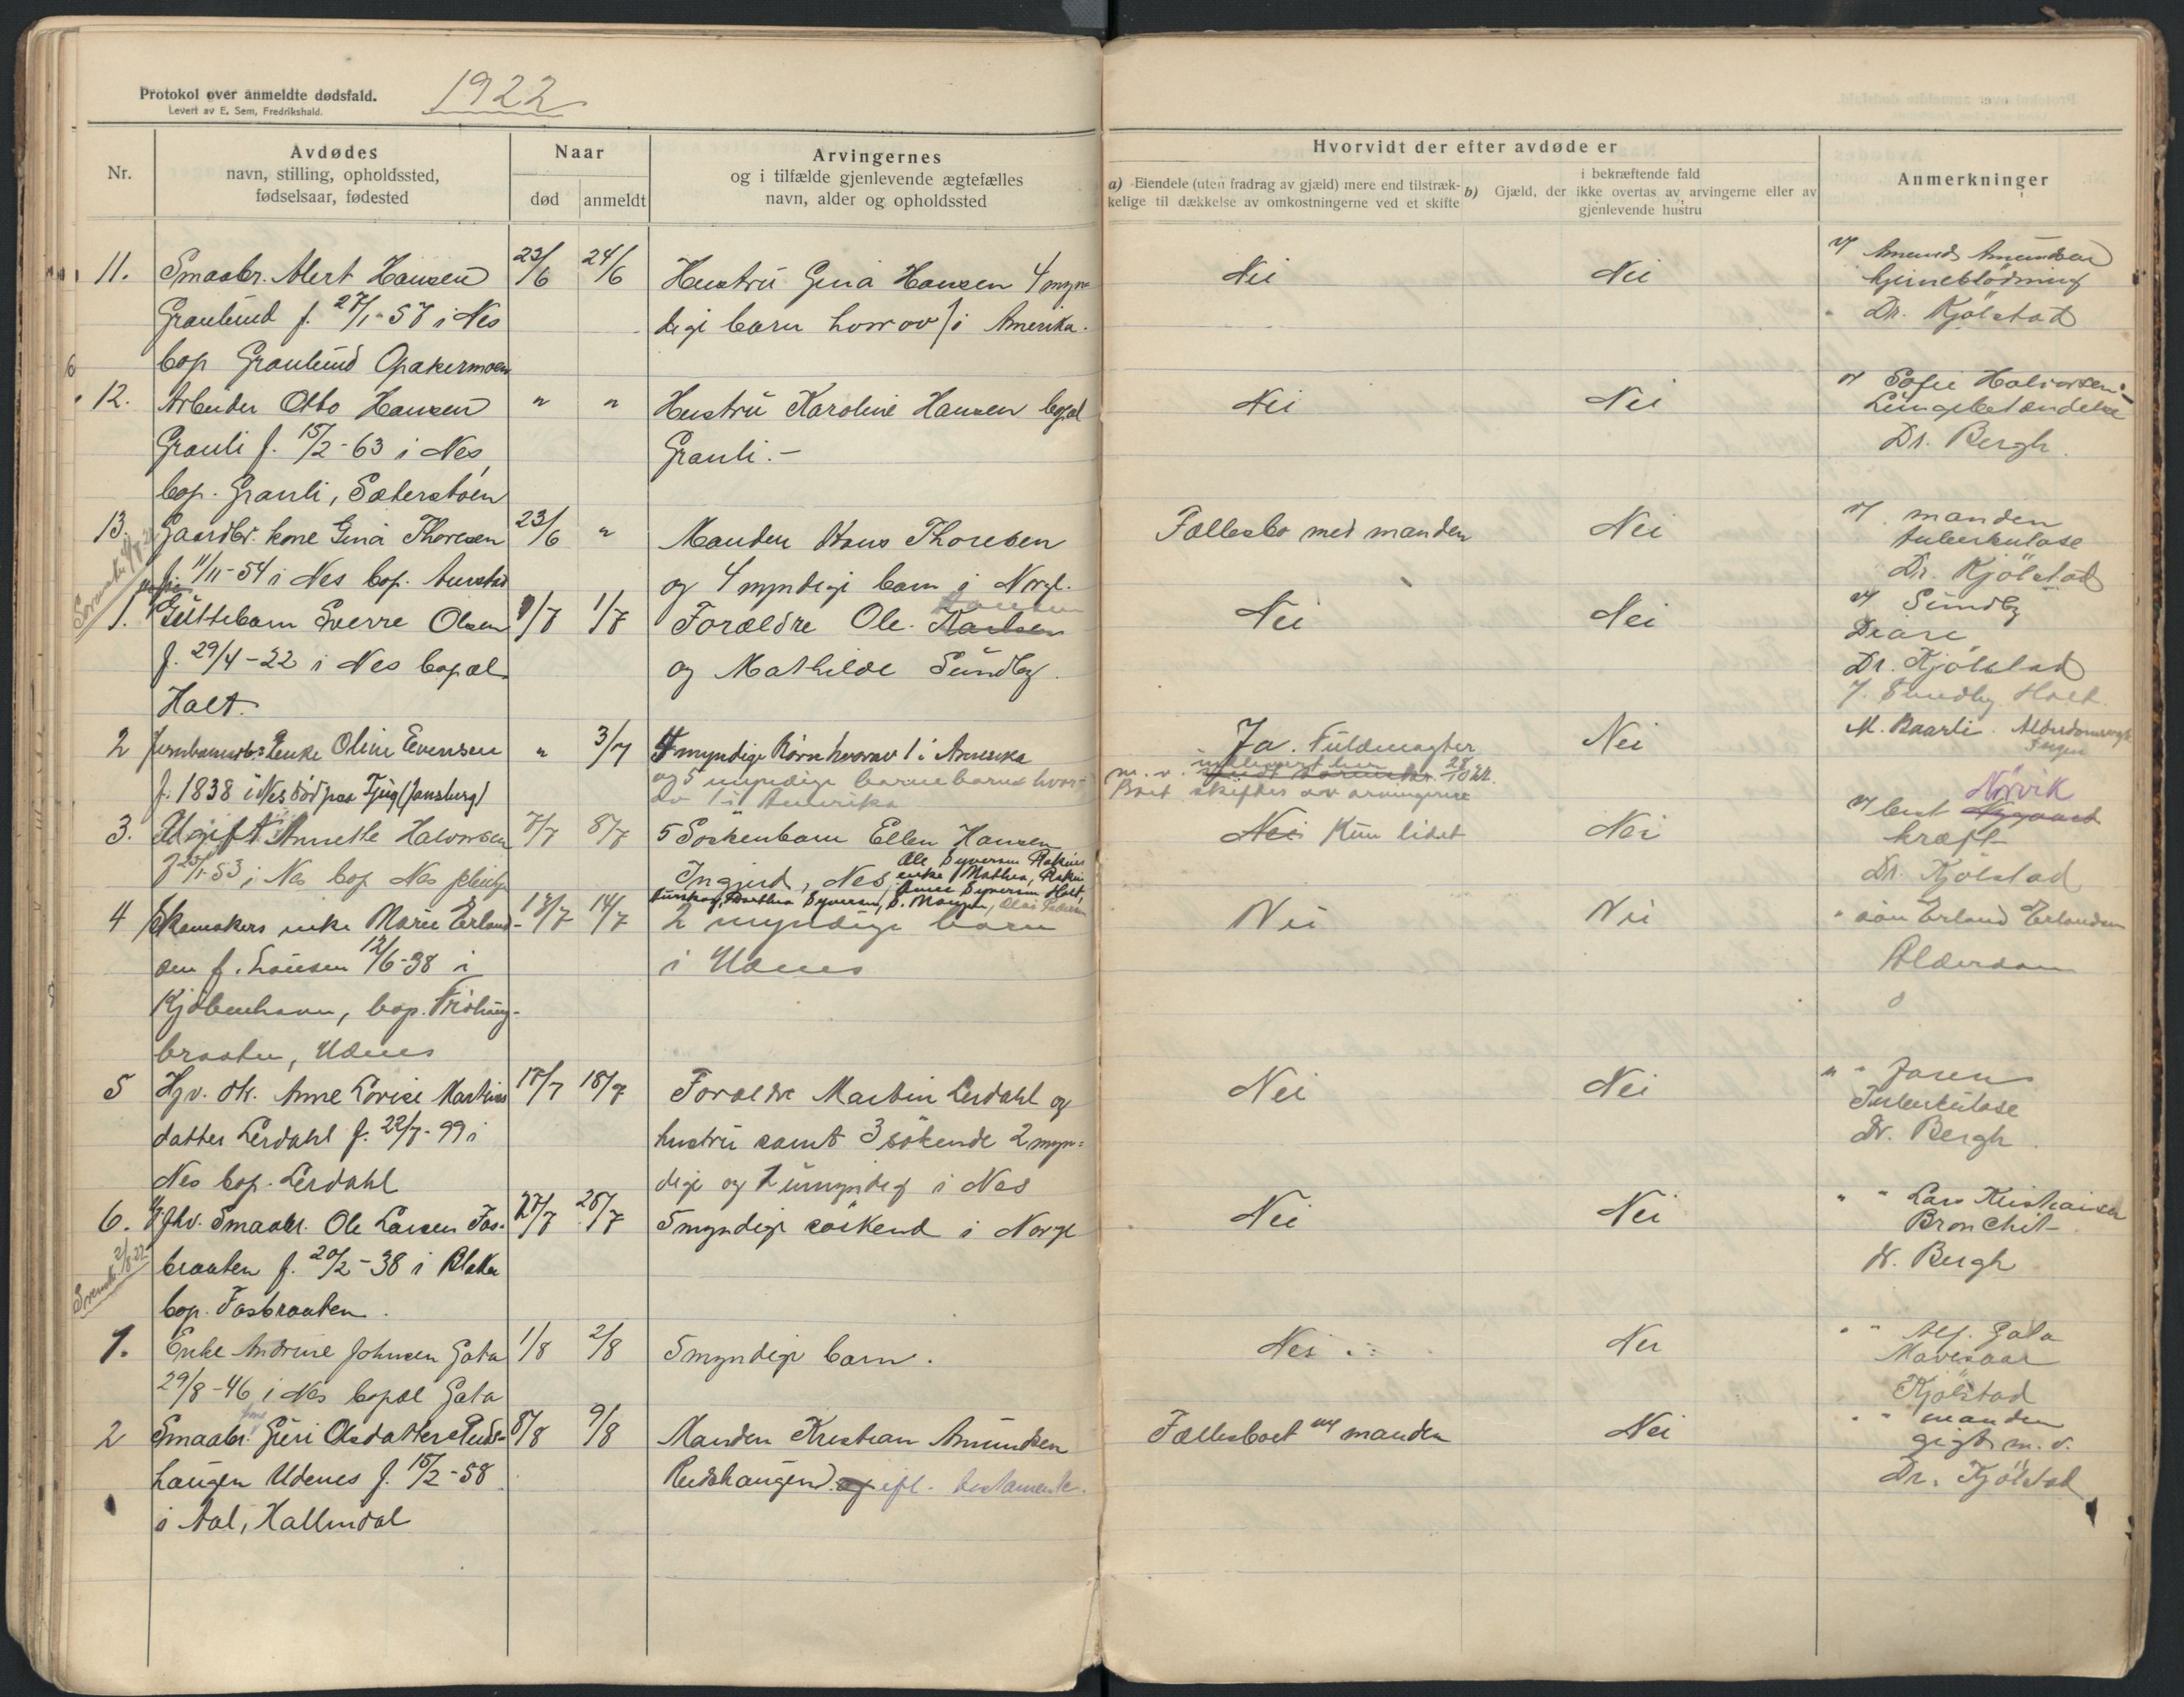 Protokol over anmeldte dødsfald.
Levert av E. Sem, Fredrikshald.
1922
Nr.
Avdødes
navn, stilling, opholdssted,
fødselsaar, fødested
Naar
død
anmeldt
Arvingernes
og i tilfælde gjenlevende ægtefælles
navn, alder og opholdssted
Hvorvidt der efter avdøde er
a) Eiendele (uten fradrag av gjæld) mere end tilstræk-
kelige til dækkelse av omkostningerne ved et skifte
i bekræftende fald
b) Gjæld, der ikke overtas av arvingerne eller av
gjenlevende hustru
Anmerkninger
11. Smaabr. Alert Hansen 23/6 24/6 Hustru Gina Hansen 4 myn- Nei Nei v/ Amund Amundsen
Granlund f. 27/1-57 i Nes dige barn hvorav 1 i Amerika. hjerneblødning
bop Granlund Opakermoen Dr. Kjölstad
12. Arbeider Otto Hansen " " Hustru Karoline Hansen bopæl Nei Nei v/ Sofie Halvorsen
Granli f. 15/2-63 i Nes Granli.- Lungebetændelse
bop. Granli, Sæterstöen Dr. Bergh.
13. Gaardbr. kone Gina Thoresen 23/6 " Manden Hans Thoresen Fællesbo med manden Nei v/ manden
f. 11/11-54 i Nes bop. og 4 myndige barn i Norge. tuberkulose
Dr. Kjölstad
1. Guttebarn Sverre Olsen 1/7 1/7 Forældre Ole Karlsen Nei Nei v/ Sundby
f. 29/4-22 i Nes bopæl og Mathilde Sundby. Diare
Holt. Dr. Kjölstad
Sundby Holt.
2 Enke Oline Evensen " 3/7 4 myndige Börn hvorav 1 i Amerika Ja. Fuldmagter Nei M. Baarli. Alderdomssvagh
f. 1838 i Nes död paa Fjug (Jansberg) og 5 myndige barnebarn hvor- 28/10 22. Ingen
av 1 i Amerika Boet skiftes av arvingerne
3. Ugift Annette Halvorsen 7/7 8/7 5 Söskenbarn Ellen Hansen Nei Kun lidet Nei v/ best. Nygaard Nörvik
f. 25/1-53 i Nes bop Nes pleiehj. Ingjerd, Nes, Ole Syversen kræft
enke Mathea, Dr. Kjölstad
Anne Syversen Holt,
Aurskog, Dorthea Syversen,
4 Skomakers enke Marie Erland- 13/7 14/7 2 myndige barn Nei Nei " sön Erland Erlandsen
sen f. Larsen 12/6-38 i i Udnes Alderdom
Kjöbenhavn, bop. 0
braaten, Udnes
5 Hjv. dtr. Anne Lovise Martins 17/7 18/7 Forældre Martin Lerdahl og Nei Nei " " faren
datter Lerdahl f. 22/7-99 i hustru samt 3 sökende 2 myn- Tuberkulose
Nes bop. Lerdahl dige og 1 umyndig i Nes Dr. Bergh.
6. Smaabr. Ole Larsen Fos- 27/7 28/7 5 myndige söskend i Norge Nei Nei " " Lars Kristiansen
braaten f. 20/2-38 i Blaker Bronchit
bop. Fosbraaten. Dr. Bergh
1. Enke Andrine Johnsen Gata 1/8 2/8 5 myndige barn. Nei Nei " " Alf. Gata
29/8-46 i Nes bopæl Gata Mavesaar
Kjölstad
2 Smaabr. Guri Olsdatter Ruds- 8/8 9/8 Manden Kristian Amundsen Fællesboet m/ manden Nei " " manden
haugen Udenes f. 15/2-58 Rudshaugen ifl. testamente. gigt m. v.
i Aal, Hallindal Dr. Kjölstad